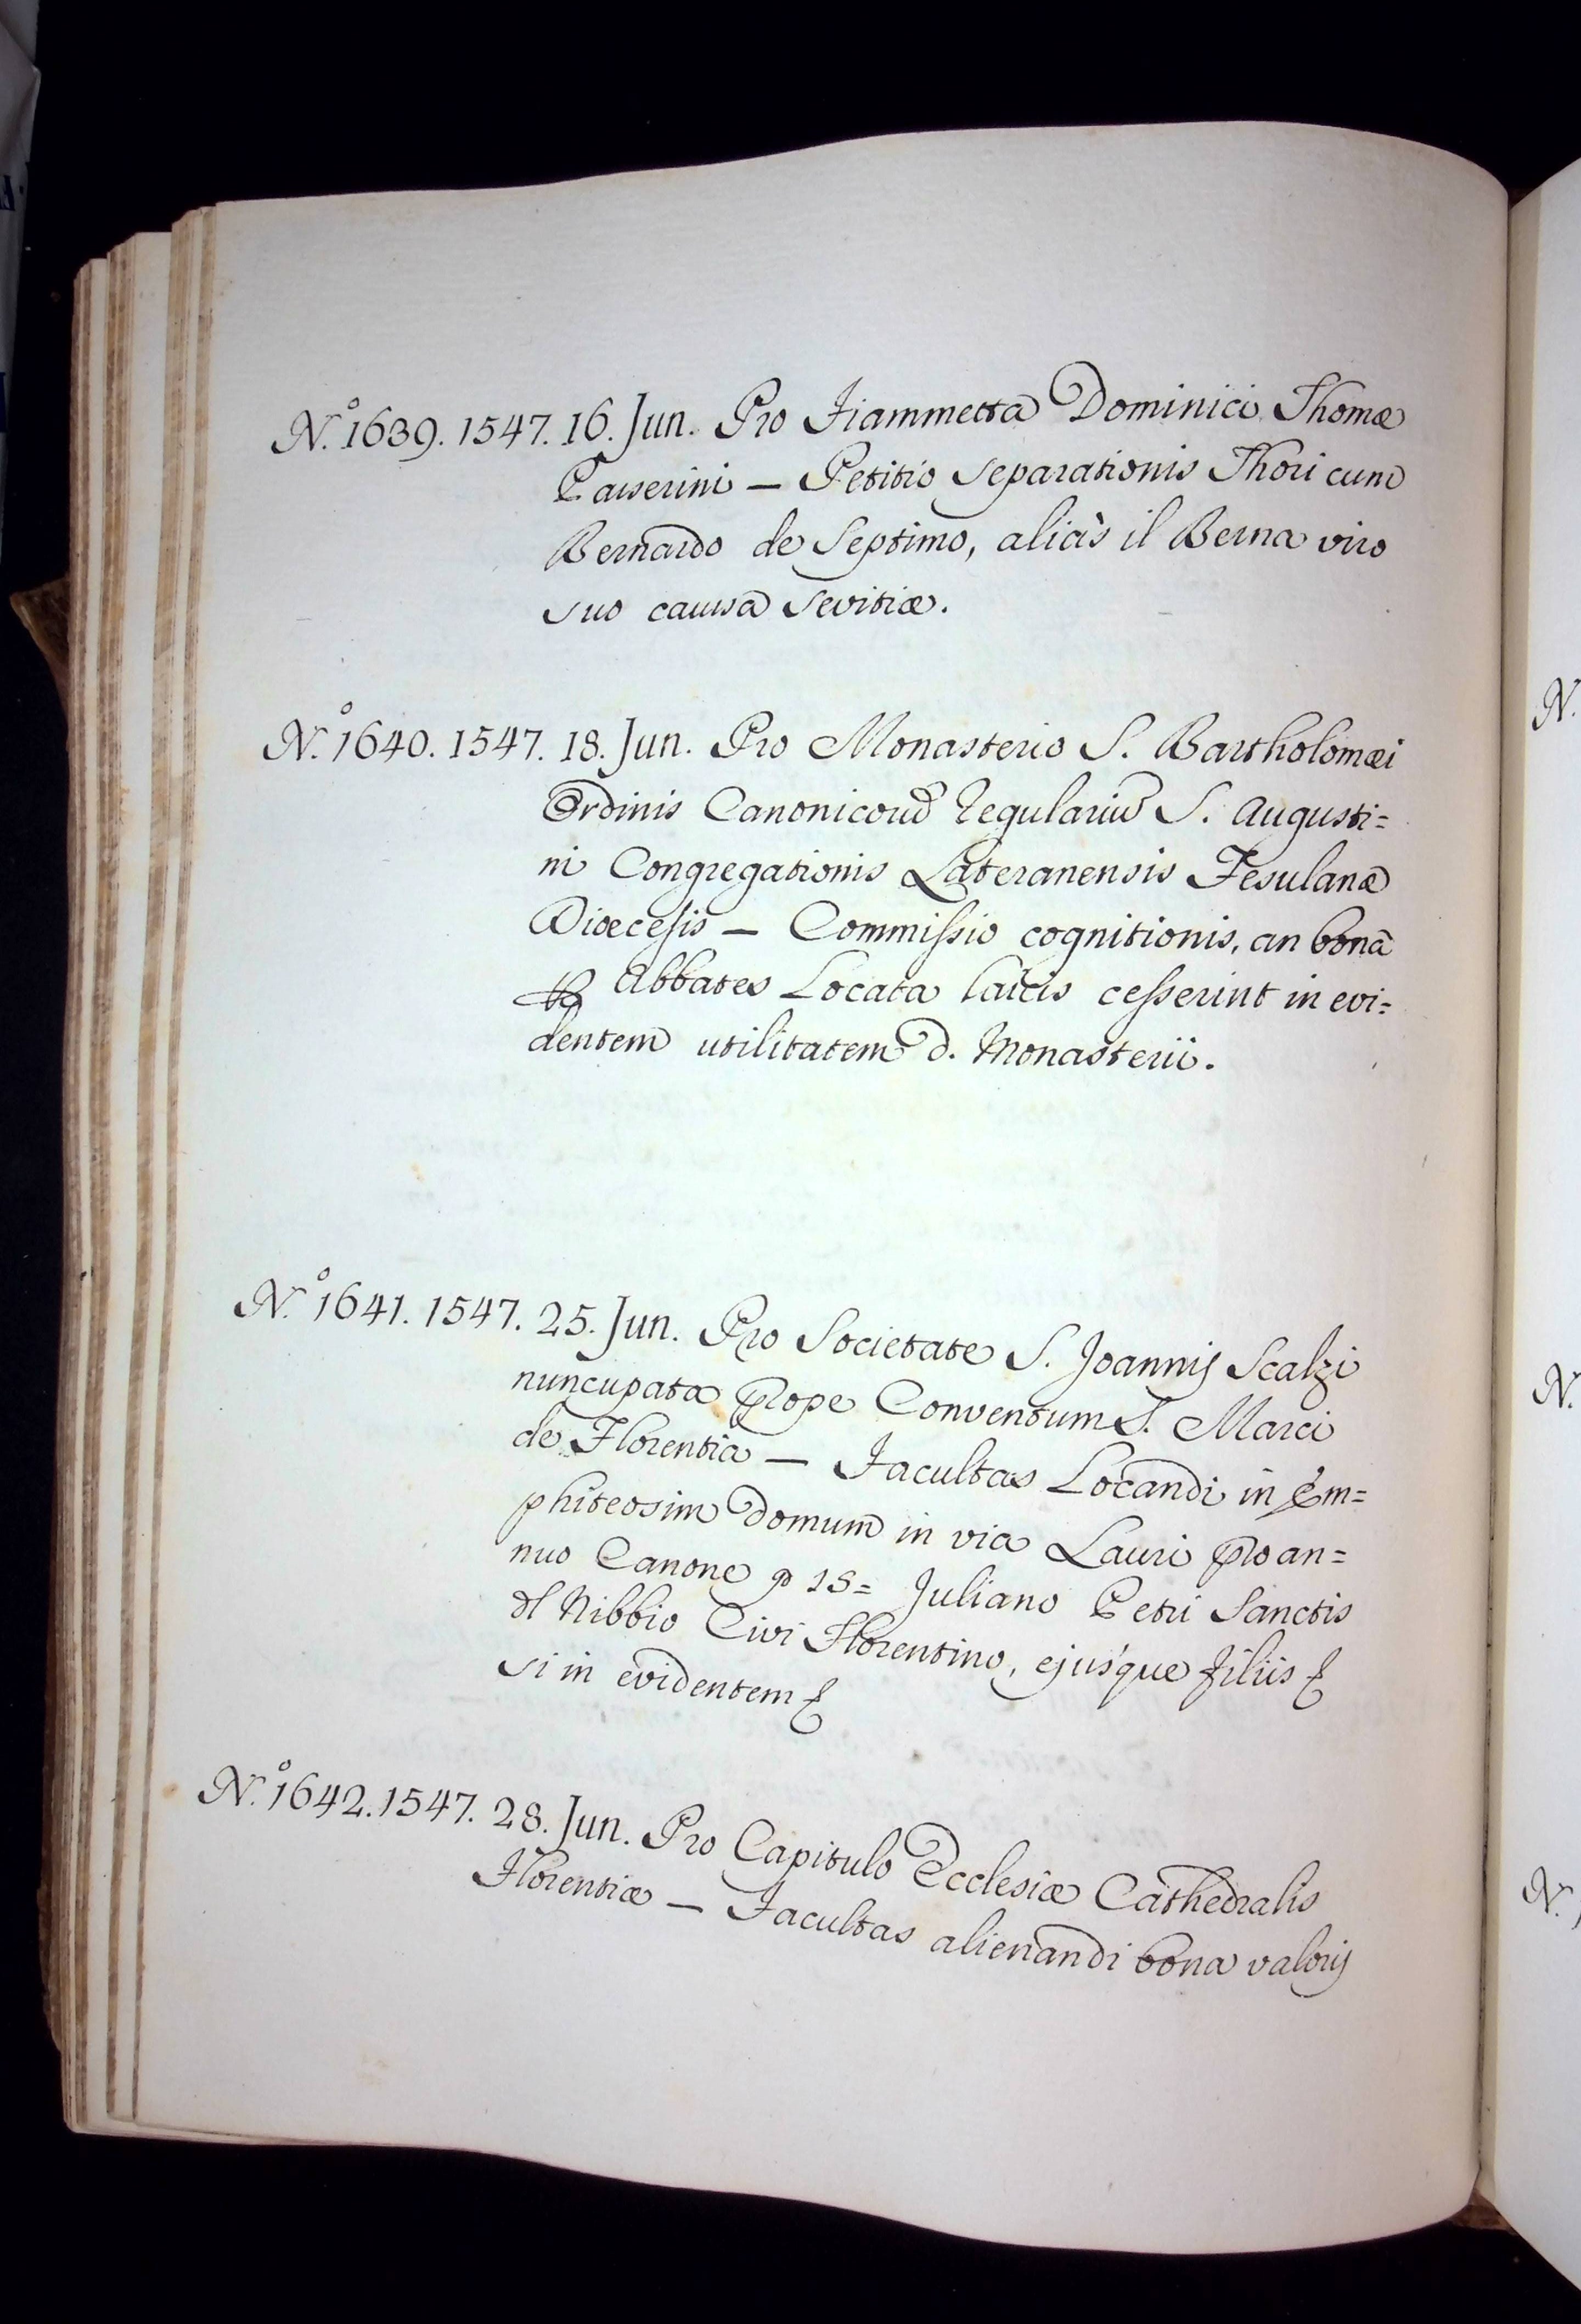 N.º 1639. 1547. 16. Jun. Pro Fiammetta Dominici Thomæ
Passerini — Petitio separationis Thori cum
Bernardo de Septimo, alias il Berna viro
suo caussa Sevitiæ.
N.º 1640. 1547. 18. Jun. Pro Monasterio S. Bartholomæi
Ordinis Canonicorũ Regulariũ S. Augusti=
ni Congregationis Lateranensis Fesulanæ
Diœcesis — Commissio cognitionis, an bona
ꝑ Abbates Locata laicis cesserint in evi=
dentem utilitatem d. Monasterii.
N.º 1641. 1547. 25. Jun. Pro Societate S. Joannis Scalzi
nuncupata prope Conventum S. Marci
de Florentia — Facultas Locandi in Em=
phiteosim Domum in via Lauri pro an=
nuo Canone 18= Juliano Petri Sanctis
dl Nibbio Civi Florentino, ejusque filiis &
si in evidentem &
N.º 1642. 1547. 28. Jun. Pro Capitulo Ecclesiæ Cathedralis
Florentiæ — Facultas alienandi bona valoris
N.
N.
N.